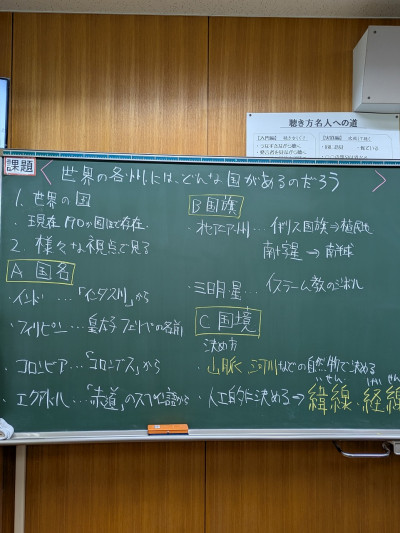 聴き方名人への道
課題
世界の各州には、どんな国があるのだろう
1. 世界の国
・現在190か国ほど存在。
2. 様々な視点で見る
A 国名
・インド…「インダス川」から
・フィリピン…皇太子フェリペの名前
・コロンビア…「コロンブス」から
・エクアドル…「赤道」のスペイン語から
B 国旗
・オセアニア州…イギリス国旗⇒植民地
南十字星→南半球
・三日月と星…イスラーム教のシンボル
C 国境
決め方
・山脈、河川などの自然物で決める
・人工的に決める→緯線・経線
いせん けいせん